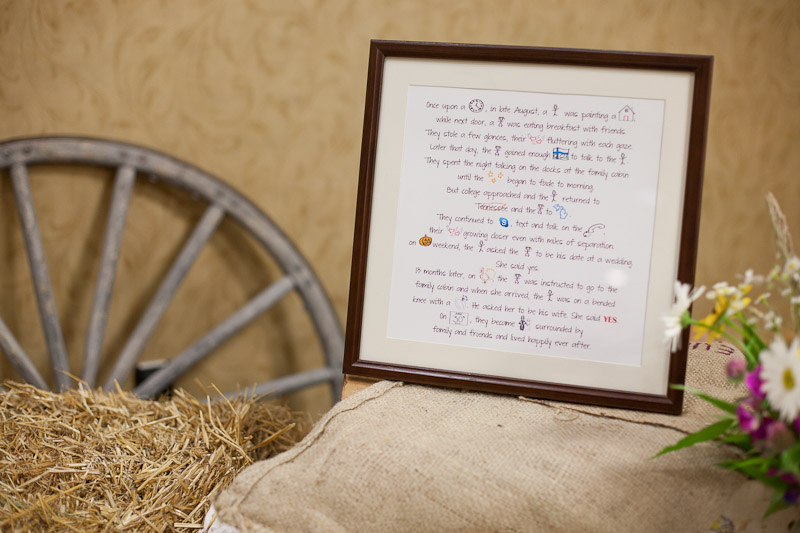 Once upon a , in late August, a was painting a
while next door, a was eating breakfast with friends.
They stole a few glances, their fluttering with each gaze.
Later that day, the gained enough to talk to the .
They spent the night talking on the docks at the family cabin
until the began to fade to morning.
But college approached and the returned to
Tennessee and the to .
They continued to , text and talk on the ,
their growing closer even with miles of separation.
on weekend, the asked the to be his date at a wedding.
She said yes.
18 months later, on the was instructed to go to the
family cabin and when she arrived, the was on a bended
knee with a . He asked her to be his wife. She said YES.
On , they became surrounded by
family and friends and lived happily ever after.